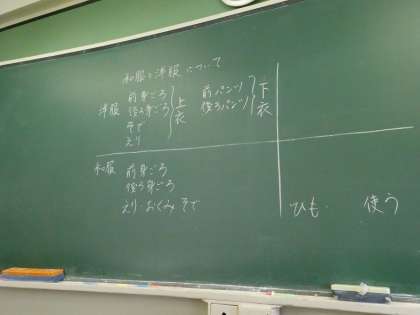 和服と洋服について
洋服 前身ごろ 上衣 前パンツ 下衣
後ろ身ごろ 後ろパンツ
そで
えり
和服 前身ごろ
後ろ身ごろ
えり・おくみ・そで
ひも 使う